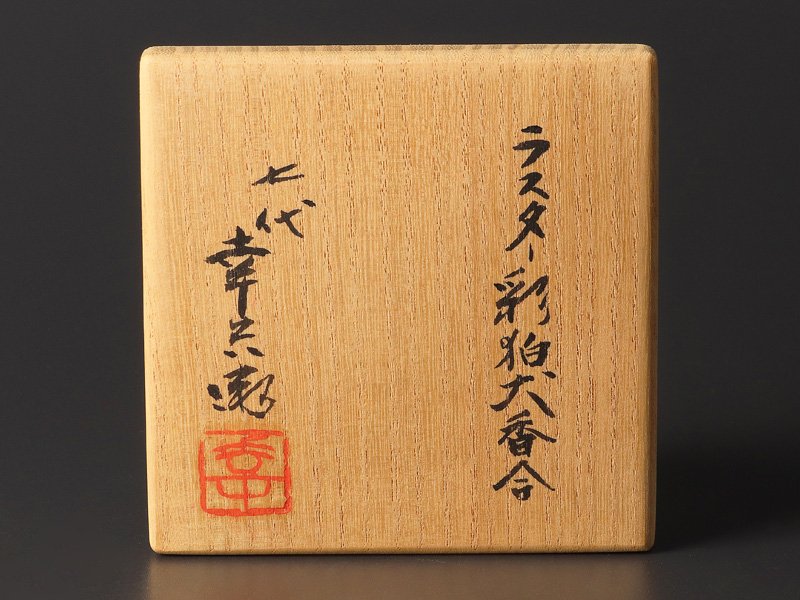 ラスター彩狛犬香合
七代
幸兵衛